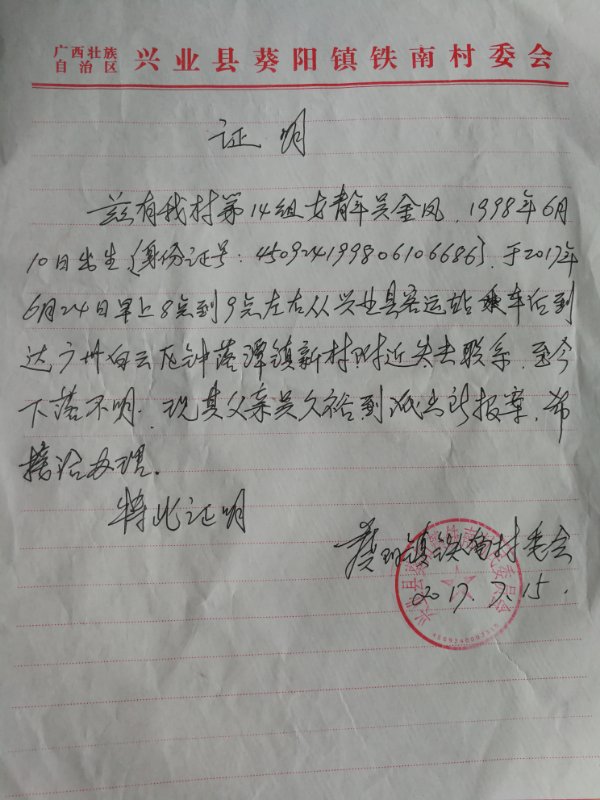 广西壮族
自治区
兴业县葵阳镇铁南村委会
证明
兹有我村第14组女青年吴金凤，1998年6月
10日出生（身份证号：450924199806106686），于2017年
6月24日早上8点到9点左右从兴业县客运站乘车后到
达广州白云区钟落潭镇新村附近失去联系，至今
下落不明。现其父亲吴久裕到派出所报案，希
接洽办理。
特此证明
葵阳镇铁南村委会
2017.7.15.